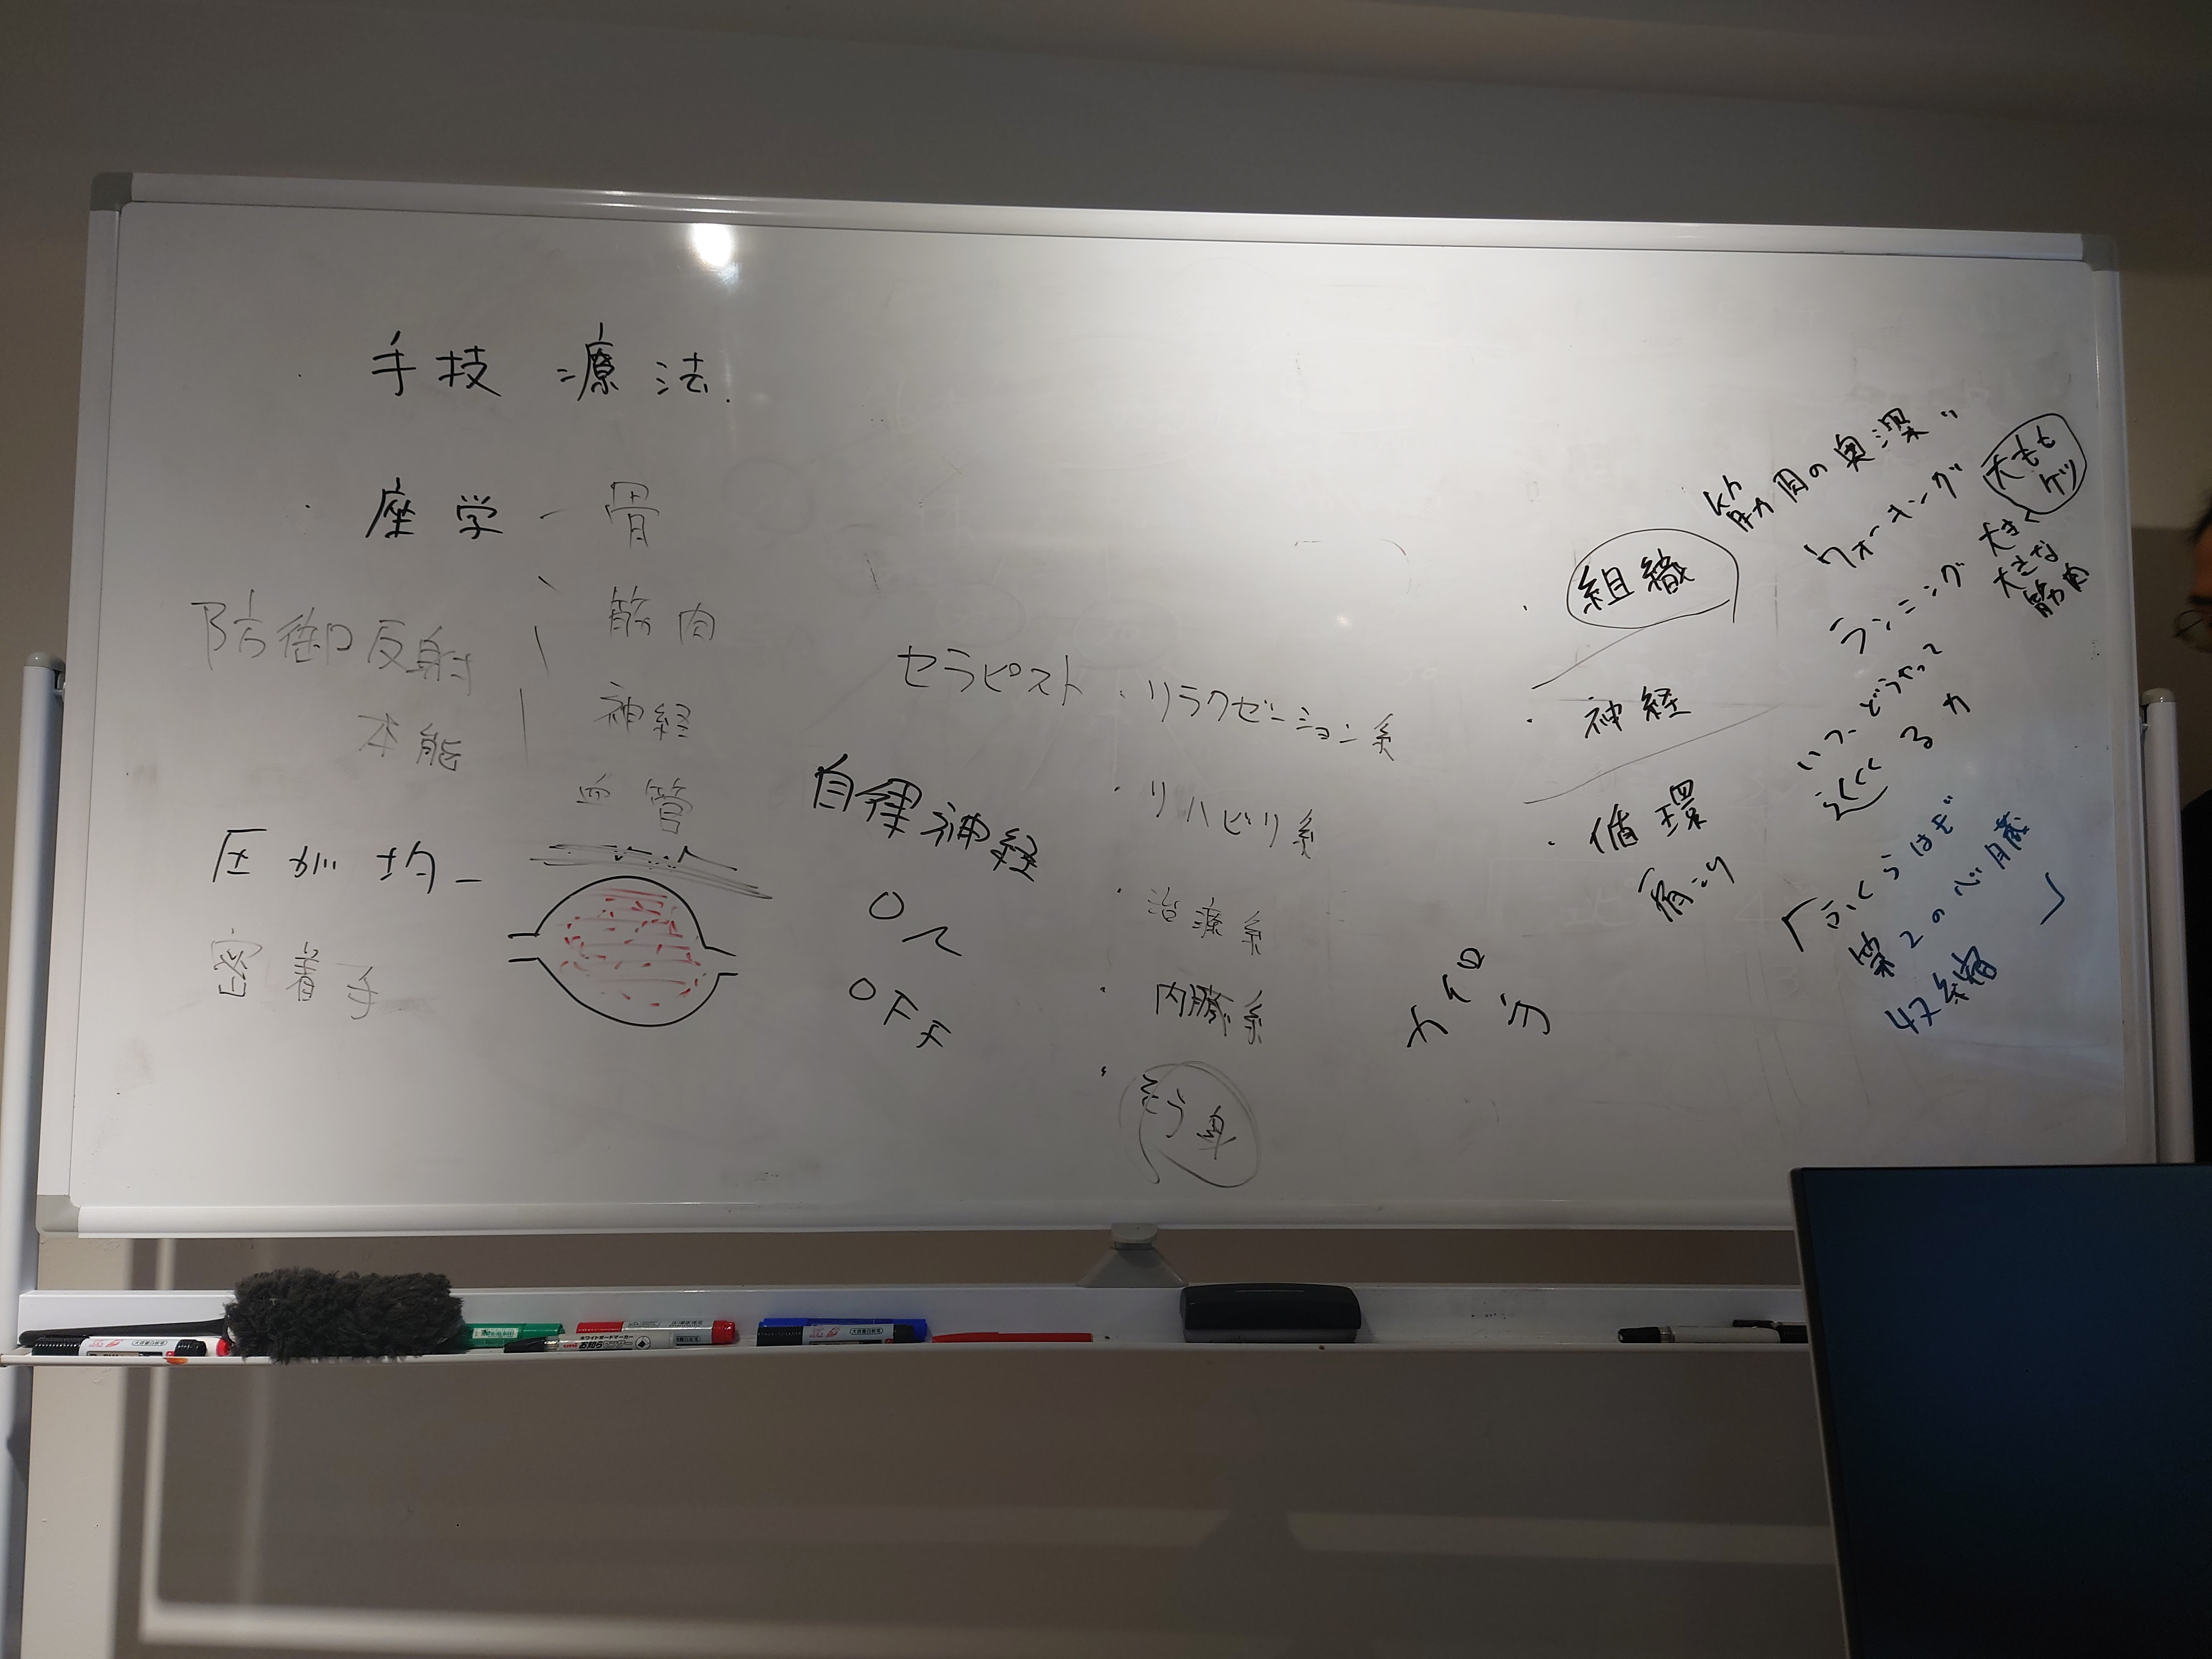 ・手技療法.
・座学 - 骨
筋肉
神経
血管
防御反射
本能
圧が均一
密着手
セラピスト
・リラクゼーション系
・リハビリ系
・治療系
・内臓系
・
自律神経
ON
OFF
・組織
・神経
・循環
筋肉の奥深
ウォーキング
ランニング
いつ、どうやって
大もも
ケツ
大きく
大きな
筋肉
「ふくらはぎ
第2の心臓
収縮」